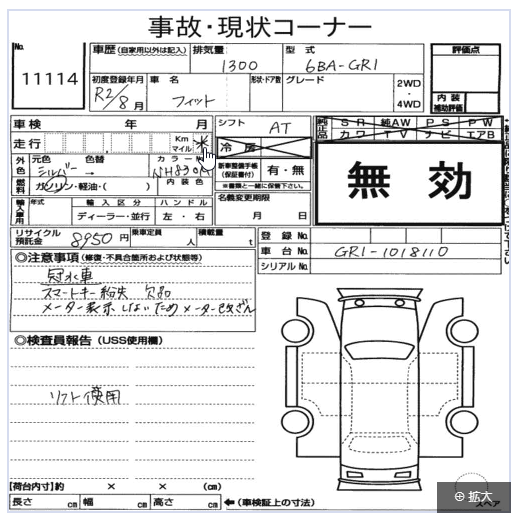 事故・現状コーナー
No. 11114
車歴 (自家用以外は記入) 排気量 1300 型式 6BA-GR1 評価点
初度登録年月 R2/8月 車名 フィット 形状・ドア数 グレード 2WD・4WD 内装補助評価
車検 年 月 シフト AT 純正品 SR 純AW PS PW
走行 Km マイル * 冷房 カワ TV ナビ エアB
外色 元色 シルバー 色替 → カラーNo. 新車整備手帳(保証書付) 有・無 無効
燃料 ガソリン・軽油・( ) 内装色 ※書類と一緒に保管下さい。
輸入車用 年式 輸入区分 ディーラー・並行 ハンドル 左・右 名義変更期限 月 日
リサイクル預託金 8950円 乗車定員 人 積載量 t 登録No.
車台No. GR1-1018110
シリアルNo.
◎注意事項 (修復・不具合箇所および状態等)
冠水車
スマートキー紛失 欠品
メーター表示しないため メーター改ざん
◎検査員報告 (USS使用欄)
リフト使用
【荷台内寸】約 × × (cm)
長さ cm 幅 cm 高さ cm ←(車検証上の寸法)
スペア
拡大